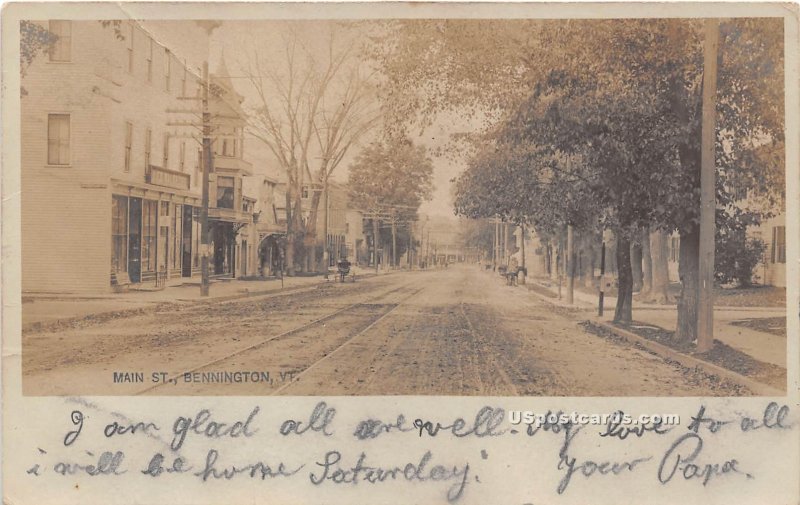 MAIN ST., BENNINGTON, VT.
USPostcards.com
I am glad all are well. My love to all
i will be home Saturday. Your Papa.